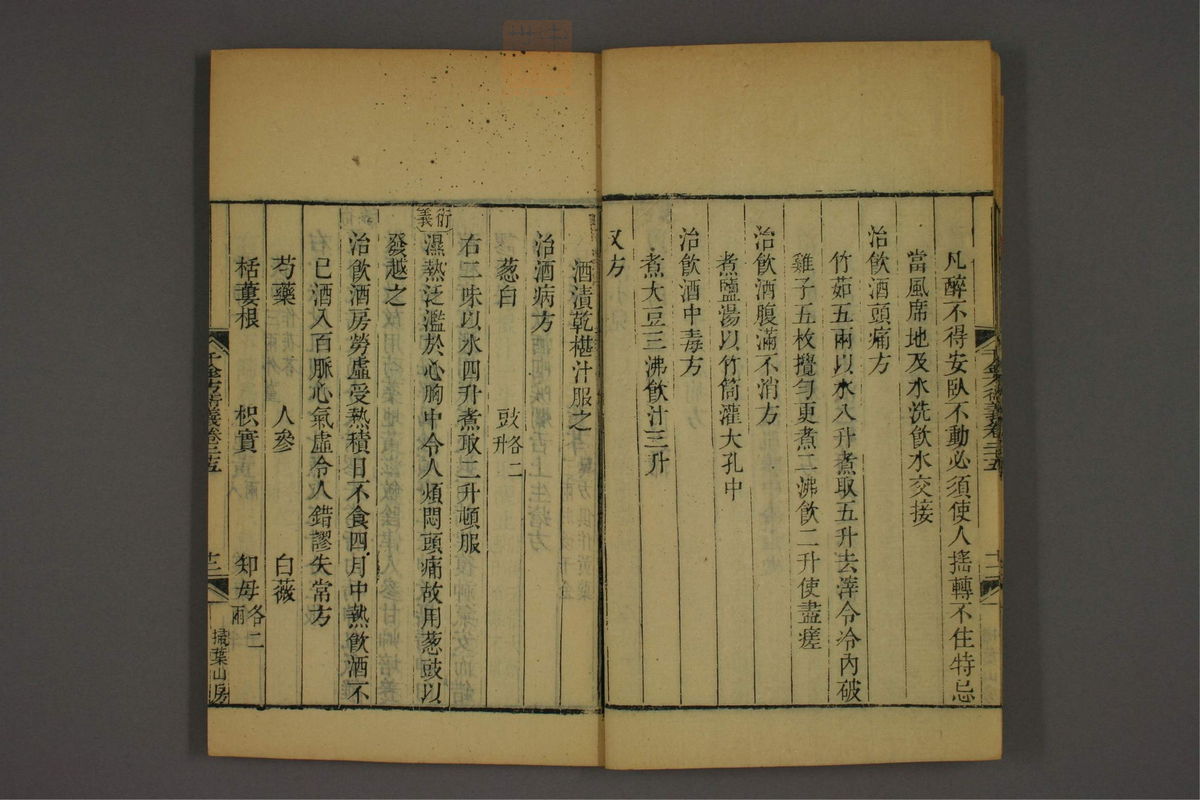 凡醉不得安臥不動必須使人搖轉不住特忌
當風席地及水洗飲水交接
治飲酒頭痛方
竹茹五兩以水八升煮取五升去滓令冷內破
雞子五枚攪勻更煮二沸飲二升使盡瘥
治飲酒腹滿不消方
煮鹽湯以竹筒灌大孔中
治飲酒中毒方
煮大豆三沸飲汁三升
又方
酒漬乾椹汁服之
治酒病方
葱白 豉各二升
右二味以水四升煮取二升頓服
衍義
濕熱泛濫於心胸中令人煩悶頭痛故用葱豉以
發越之
治飲酒房勞虛受熱積日不食四月中熱飲酒不
已酒入百脈心氣虛令人錯謬失常方
芍藥 人參 白薇
栝蔞根 枳實 知母各二兩
千金方衍義卷二十五
十二
掃葉山房